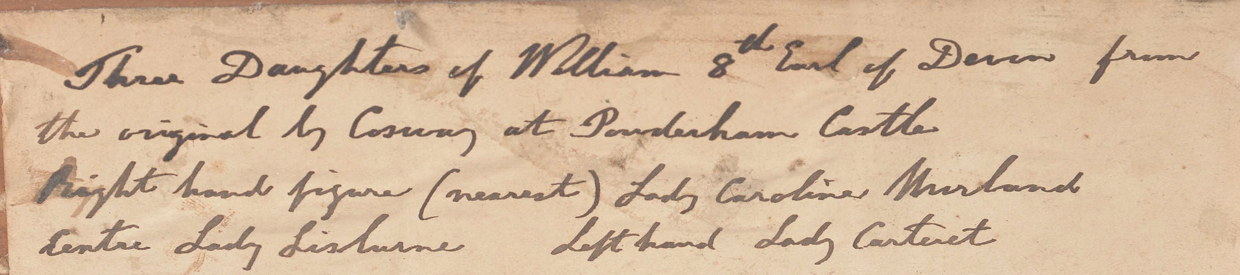 Three Daughters of William 8th Earl of Devon from
the original by Cosway at Powderham Castle
Right hand figure (nearest) Lady Caroline Murland
Centre Lady Lisburne Left hand Lady Carteret